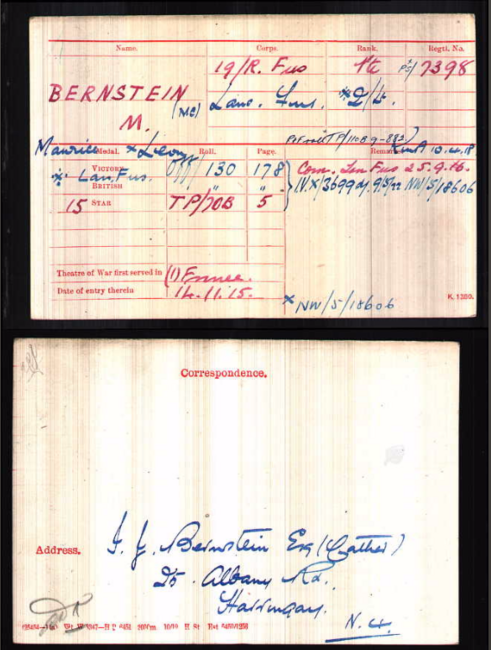 Name. Corps. Rank. Regtl. No.
BERNSTEIN 19/R. Fus Pte PS/7398
(MC) Lanc. Fus. * 2/Lt.
M.
Maurice * Levy
Medal. Roll. Page. Remarks
VICTORY Off/130 178 Com. Lan Fus 25.9.16.
* Lan. Fus. K in A 10.4.18
BRITISH " " IV.X/3699 9/5/22 NW/5/18606
15 STAR TP/70B 5
Theatre of War first served in (1) France.
Date of entry therein 14.11.15.
* NW/5/18606
K. 1380.
Correspondence.
Address. J. J. Bernstein Esq (Father)
25. Albany Rd.
Harringay.
N. 4.